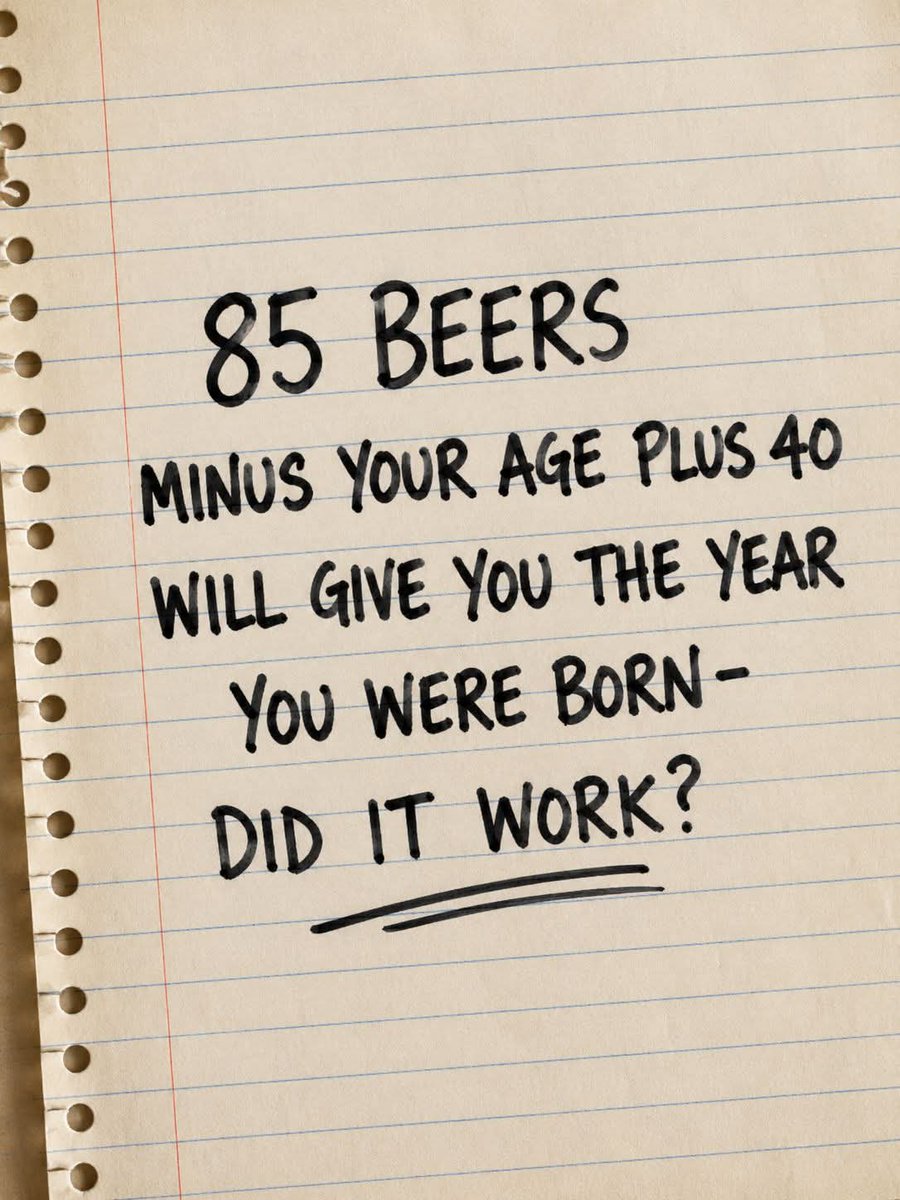 85 BEERS
MINUS YOUR AGE PLUS 40
WILL GIVE YOU THE YEAR
YOU WERE BORN-
DID IT WORK?